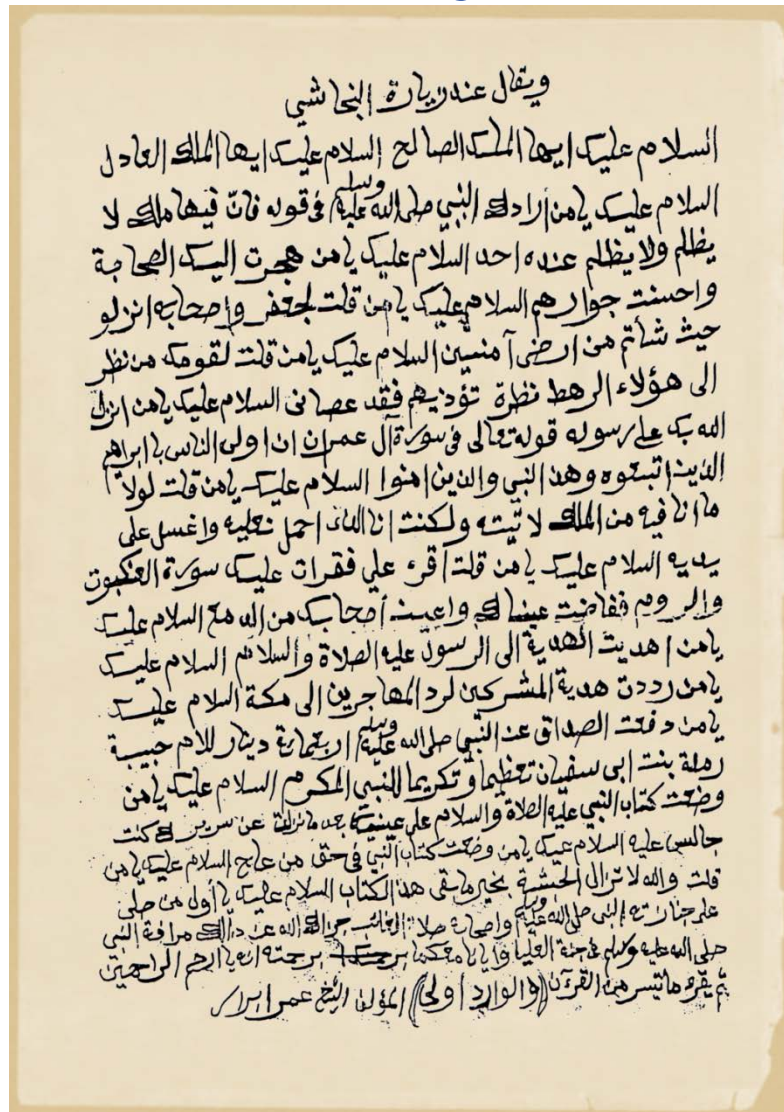 ويقال عند زيارة النجاشي
السلام عليك ايها الملك الصالح السلام عليك ايها الملك العادل
السلام عليك يا من أرادك النبي صلى الله عليه وسلم في قوله فانّ فيها ملك لا
يظلم ولا يظلم عنده احد السلام عليك يا من هجرت اليك الصحابة
واحسنت جوارهم السلام عليك يا من قلت لجعفر واصحابه انزلو
حيث شأتم من ارضي آمنين السلام عليك يا من قلت لقومك من نظر
الى هؤلاء الرهط نظرة تؤذيهم فقد عصانى السلام عليك يا من انزل
الله بك على رسوله قوله تعالى فى سورة آل عمران ان اولى الناس بابراهيم
الذين اتبعوه وهذ النبي والذين امنوا السلام عليك يا من قلت لولا
ما انا فيه من الملك لا تيته ولكنت انا الذى احمل نعليه واغسل على
يديه السلام عليك يا من قلت أقرء علي فقرات عليك سورة العنكبوت
والروم ففاضت عيناك واعين أصحابك من الدمع السلام عليك
يا من اهديت الهدية الى الرسول عليه الصلاة والسلام السلام عليك
يا من رددت هدية المشركين لرد المهاجرين الى مكة السلام عليك
يا من دفعت الصداق عن النبي صلى الله عليه وسلم اربعمائة دينار للام حبيبة
رملة بنت ابى سفيان تعظيما وتكريما للنبي المكرم السلام عليك يا من
وضعت كتاب النبي عليه الصلاة والسلام على عينيك بعد ما نزلت عن سريرك كنت
جالس عليه السلام عليك يا من وضعت كتاب النبي في حق من عاج السلام عليك يا من
قلت والله لا تزال الحبشة بخير ما بقى هذ الكتاب السلام عليك يا أول من صلى
على جنازته النبى صلى الله عليه وسلم واصحابه صلاة الغائب جزاك الله عن ذالك مرافقة النبي
صلى الله عليه وسلم فى جنة العليا وايانا معكما برحمته انه يا ارحم الراحمين
ثم يقرء ما تيسر من القرآن ((والوارد أولى)) المؤلف الشيخ عمر ابرار